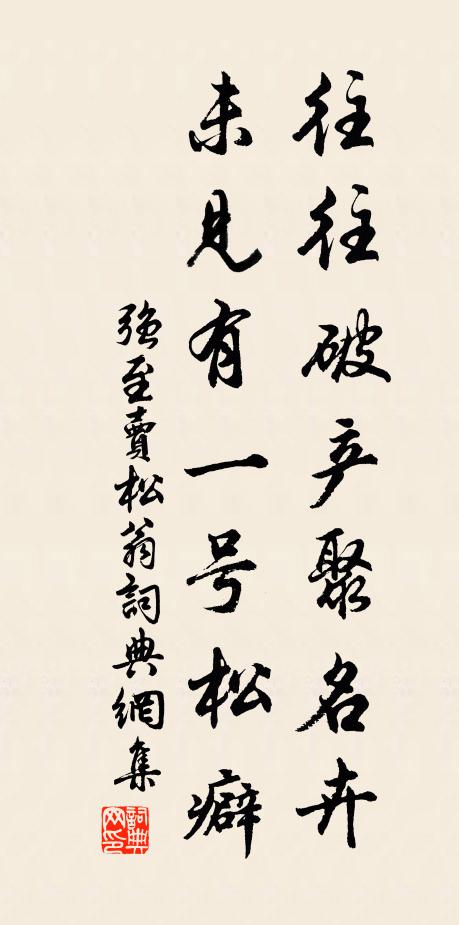 往往破产聚名卉
未见有一号松癖
强至賣松翁詞典網集
詞典網印